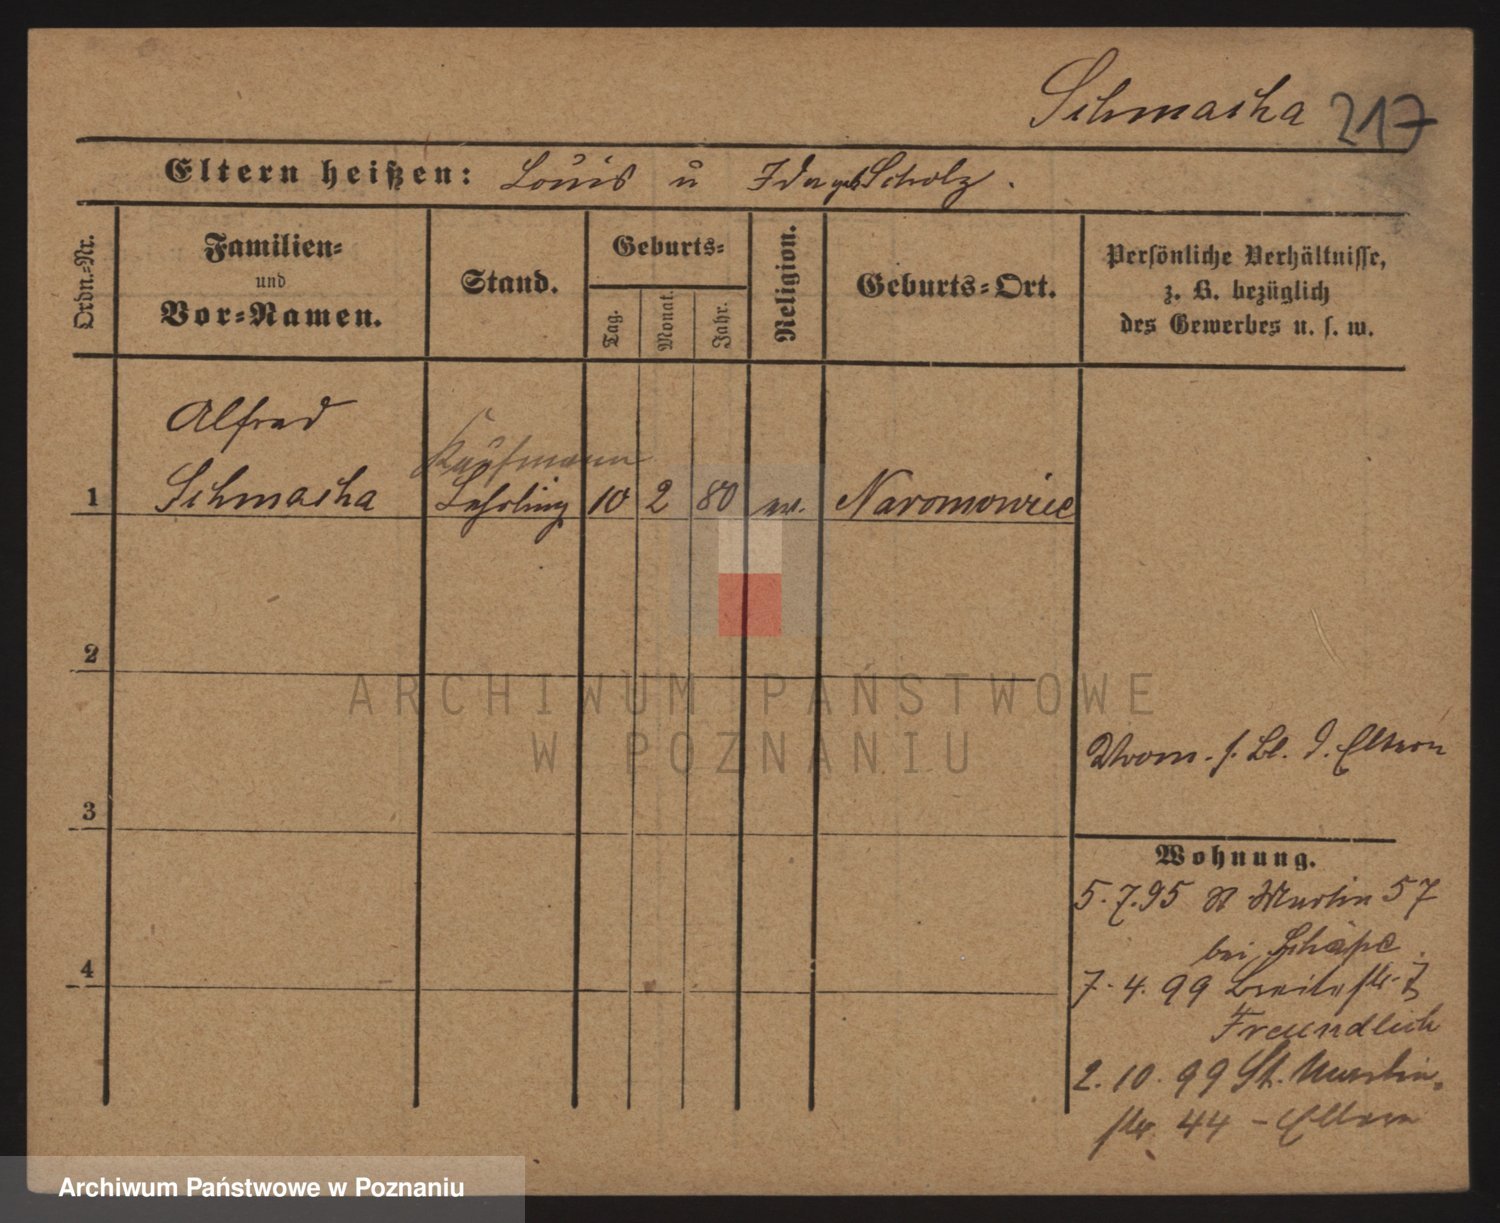 Schmacha 217
Eltern heißen: Louis u Ida geb Scholz.
Ordn.=Nr.
Familien=
und
Vor=Namen.
Stand.
Geburts=
Tag.
Monat.
Jahr.
Religion.
Geburts=Ort.
Persönliche Verhältnisse,
z. B. bezüglich
des Gewerbes u. s. w.
Alfred
Kaufmann
1 Schmacha Lehrling 10 2 80 ev. Naromowice
2
ARCHIWUM PAŃSTWOWE
W POZNANIU
s. Bl. d. Eltern
3
Wohnung.
5.7.95 St Martin 57
bei Schäpe
4
7.4.99 Breitestr. 7
Freundlich
2.10.99 St. Martin
str. 44 - Eltern
Archiwum Państwowe w Poznaniu